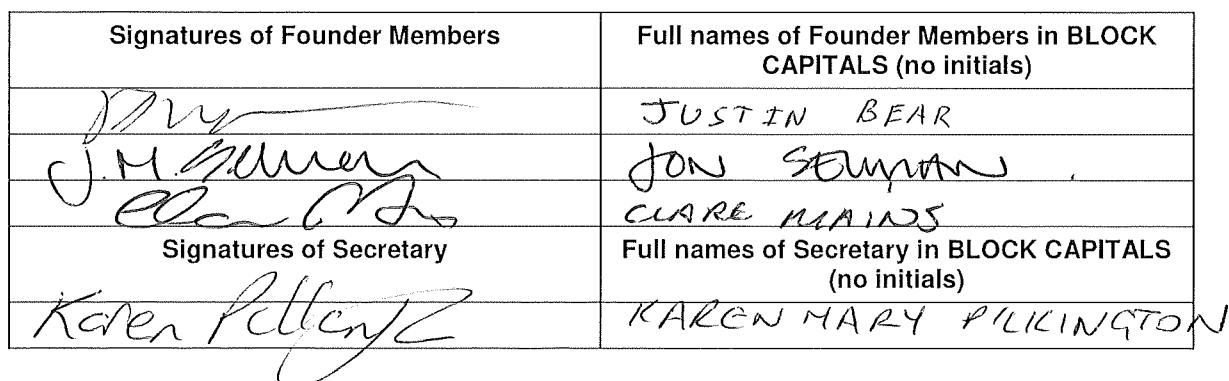 Signatures of Founder Members
Full names of Founder Members in BLOCK
CAPITALS (no initials)
JUSTIN BEAR
J.M. Selman
JON SELMAN
CLARE MAINS
Signatures of Secretary
Full names of Secretary in BLOCK CAPITALS
(no initials)
Karen Pilkington
KAREN MARY PILKINGTON